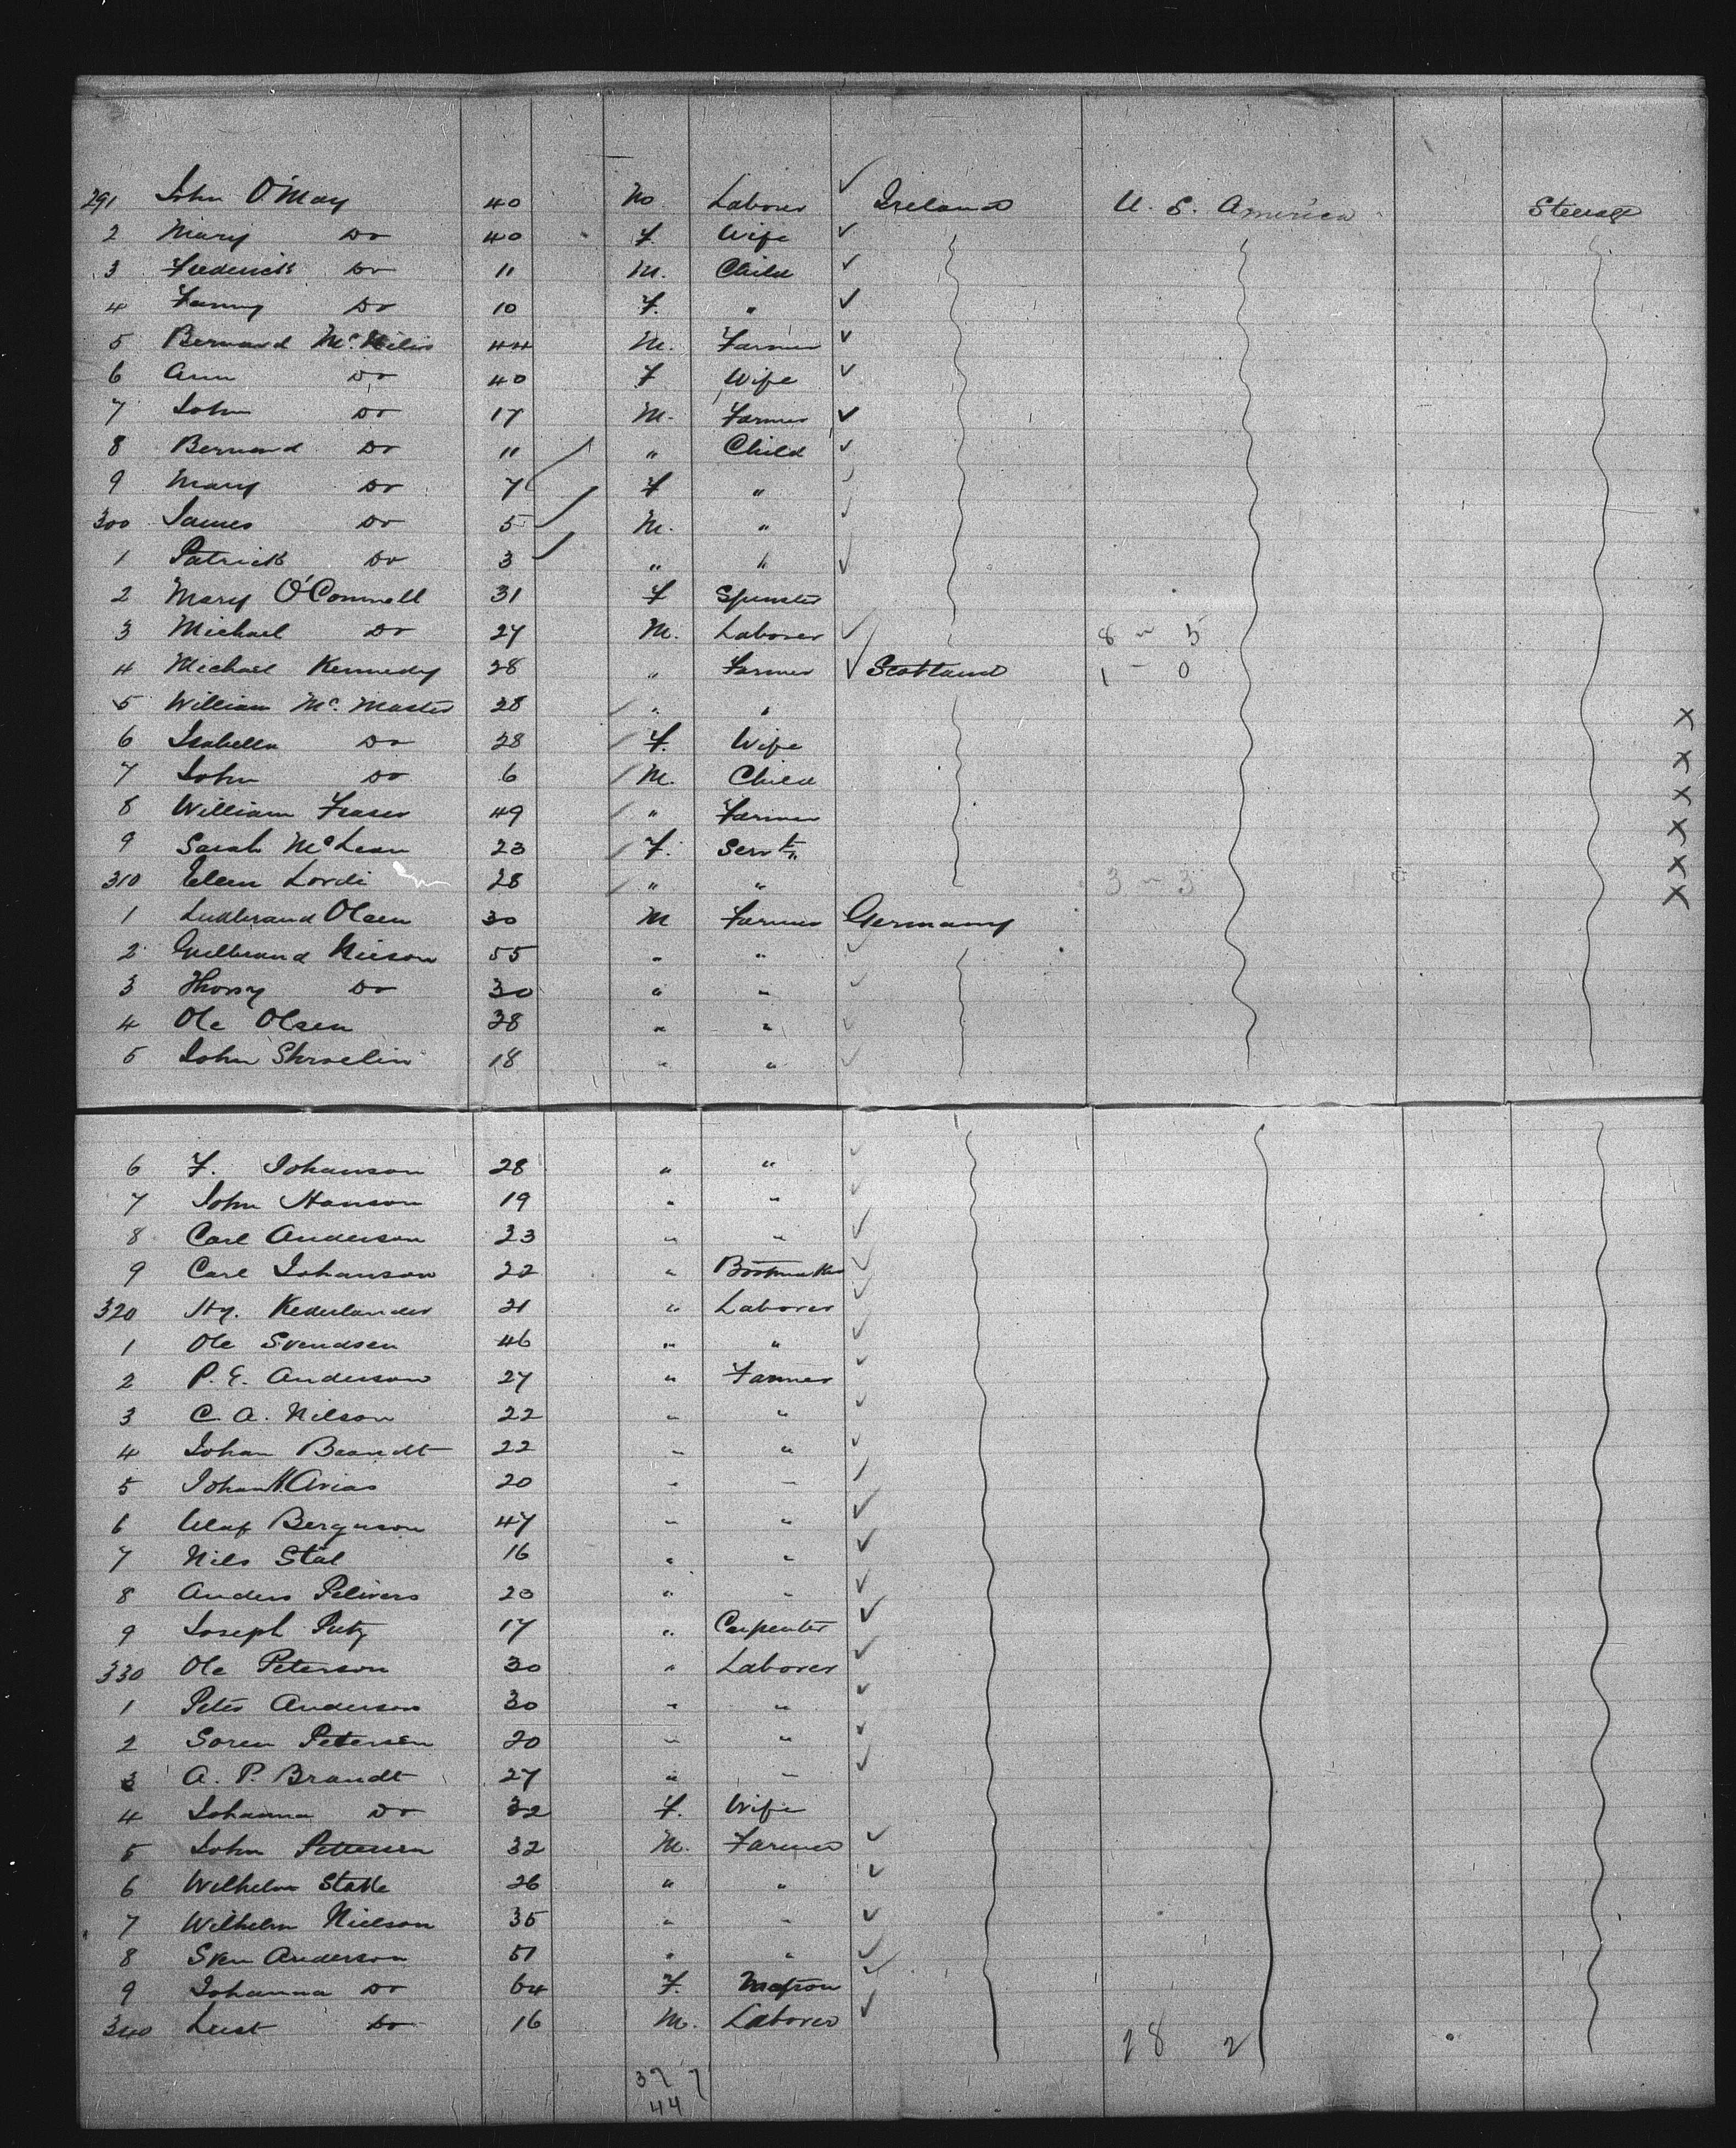 291 John O'May 40 M. Laborer Ireland U. S. America Steerage
2 Mary Do 40 F. Wife
3 Frederick Do 11 M. Child
4 Fanny Do 10 F. "
5 Bernard Mc. 44 M. Farmer
6 Ann Do 40 F Wife
7 John Do 17 M. Farmer
8 Bernard Do 11 " Child
9 Mary Do 7 F "
300 James Do 5 M. "
1 Patrick Do 3 " "
2 Mary O'Connell 31 F Spinster
3 Michael Do 27 M. Laborer 8 - 5
4 Michael Kennedy 28 " Farmer Scotland 1 - 0
5 William Mc. Master 38 " "
6 Isabella Do 28 F. Wife
7 John Do 6 M. Child
8 William Fraser 49 " Farmer
9 Sarah McLean 23 F. Servt.
310 Ellen Lordi 28 " " 3 - 3
1 Olsen 30 M Farmer Germany
2 55 " "
3 Do 30 " "
4 Ole Olsen 38 " "
5 John 18 " "
6 F. Johanson 28 " "
7 John Hanson 19 " "
8 Carl Anderson 23 " "
9 Carl Johanson 22 " Bootmaker
320 Hy. 31 " Laborer
1 Ole Svendsen 46 " "
2 P. E. Anderson 27 " Farmer
3 C. A. Nilson 22 " "
4 Johan Brandt 22 " "
5 20 " "
6 Olaf Berguson 47 " "
7 Nils Stal 16 " "
8 Anders 23 " "
9 Joseph 17 " Carpenter
330 Ole Peterson 30 " Laborer
1 Peter Anderson 30 " "
2 Soren Petersen 20 " "
3 A. P. Brandt 27 " "
4 Johanna Do 32 F. Wife
5 John 32 M. Farmer
6 Wilhelm 26 " "
7 Wilhelm Nielson 35 " "
8 Sven Anderson 51 " "
9 Johanna Do 64 F. Matron
340 Do 16 M. Laborer
28 2
37 7
44